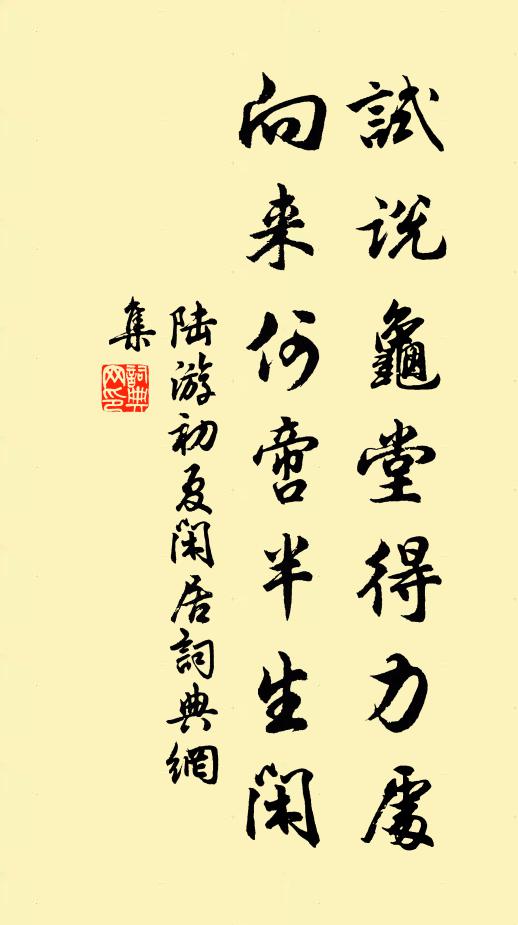 試说龜堂得力處
向来何啻半生閑
陆游初夏閑居詞典網
集
詞典网印